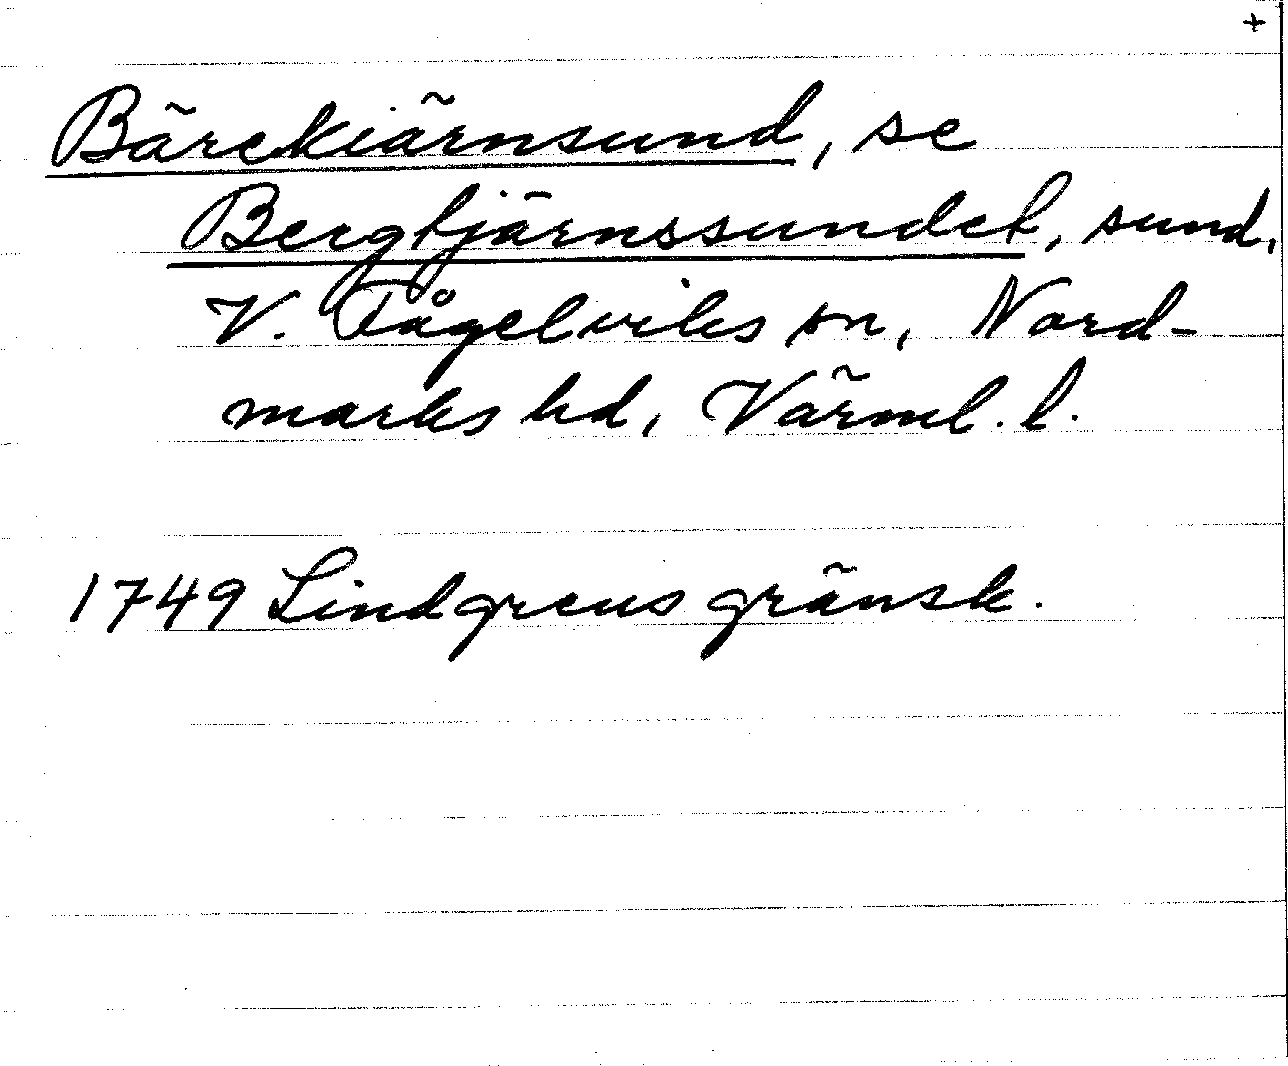 +
Bärekiärnsund, se
Bergtjärnssundet, sund,
V. Fågelviks sn, Nord-
marks hd, Värml. l.
1749 Lindgrens gränsk.